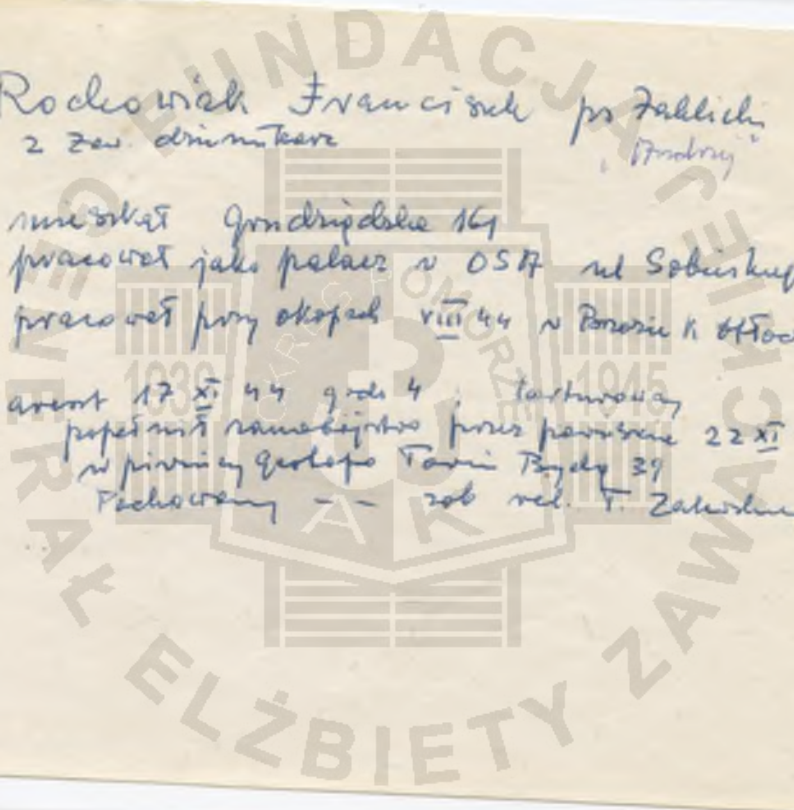 Rochowiak Franciszek ps Zaklicki
z zaw. dziennikarz "Andrzej"
mieszkał Grudziądzka 161
pracował jako palacz w OSA ul Sobieskieg
pracował przy okopach VIII 44 w Brzoziu k
areszt 17 XI 44 godz 4 torturowany
popełnił samobójstwo przez powieszenie 22 XI
w piwnicy gestapo Toruń Bydg 39
Pochowany -- zob rel. T.
FUNDACJA GENERAŁ ELŻBIETY ZAWAC
OKRĘG POMORZE
1939 1945
AK